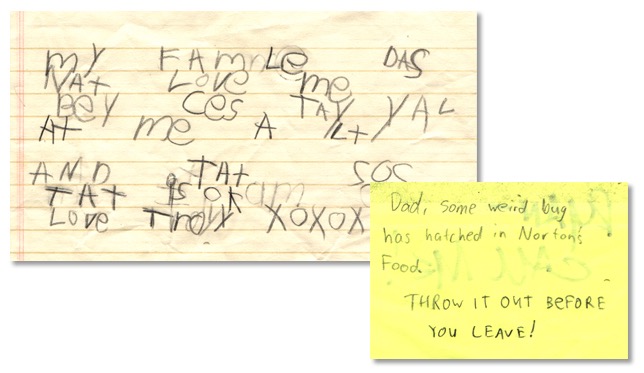 MY FAMNLe DAS
NAT LOVe me
BeY CeS TAY YAL
AT me A LT
AND TAT SOC
TAT is OK
Love XOXOX
Dad, some weird bug
has hatched in Norton's
Food.
THROW IT OUT BeFORE
YOU LEAVE!